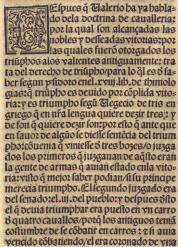 Despues q̃ Ualerio ha ya habla
do dela doctrina de caualleria:
por la qual son alcançadas las
nobles y desseadas vitorias: por
las quales fuerõ otorgados los
triũphos alos valientes antiguamente: tra
ta del derecho de triũpho: para lo q̃l es d̃ sa
ber segun ysidoro enel.xviij.lib. de
ethimolo
gias: q̃ triũpho es deuido por cõplida vito
ria: y es triumpho segũ Uegecio de tris en
griego q̃ en nr̃a lengua quiere dezir tres: y
de son q̃ quiere dezir son: por esso q̃ ante que
en fauor de algũo se diesse sentẽcia del triũm
pho: cõuenia q̃ viniesse d̃ tres bozes/o juzga
dos los primeros q̃ juzgauan de aq̃sto eran
la gente de armas q̃ auian estado enla vito
ria: visto q̃ mejor saber podian/si su principe
merecia triumpho. El segundo juzgado era
del senado: el.iij. del pueblo: y despues d̃ste
el q̃ deuia triumphar era puesto en vn carro
d̃ quatro cauallos/porq̃ los antiguos teniã
costumbre de se cõbatir en carros: z si auia
vencido cõbatiendo/el era coronado de vna